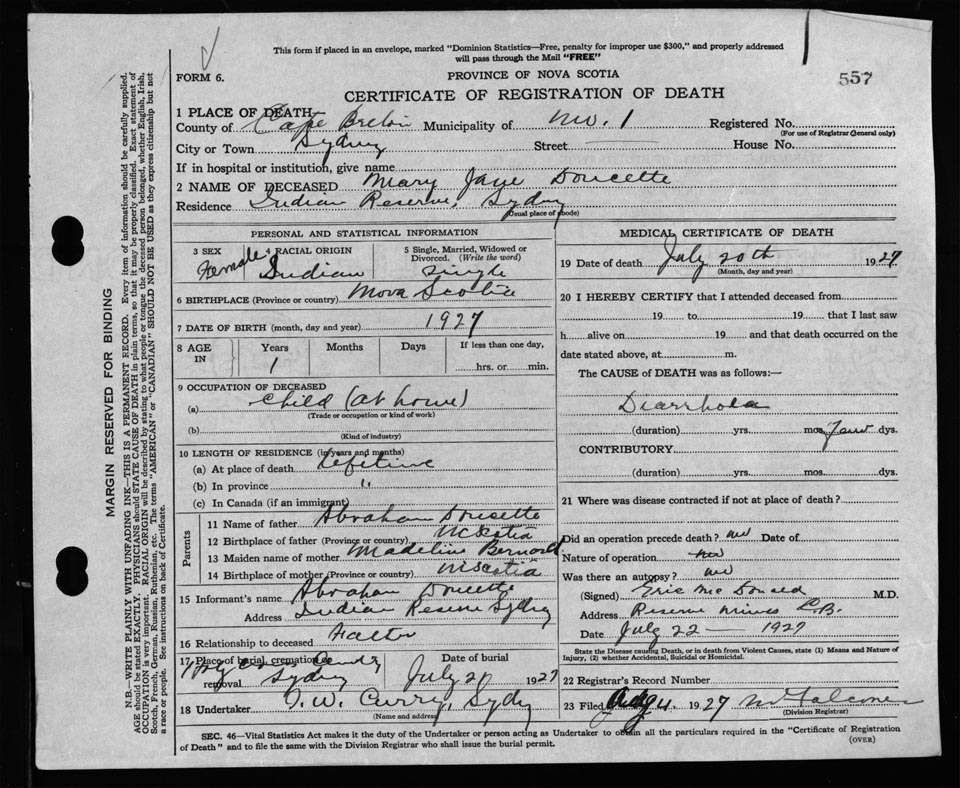 This form if placed in an envelope, marked "Dominion Statistics—Free, penalty for improper use $300," and properly addressed
will pass through the Mail "FREE"
FORM 6.
PROVINCE OF NOVA SCOTIA
557
CERTIFICATE OF REGISTRATION OF DEATH
1 PLACE OF DEATH
County of Cape Breton Municipality of No. 1 Registered No.
(For use of Registrar General only)
City or Town Sydney Street House No.
If in hospital or institution, give name
2 NAME OF DECEASED Mary Jane Doucette
Residence Indian Reserve, Sydney
(Usual place of abode)
PERSONAL AND STATISTICAL INFORMATION
3 SEX Female
4 RACIAL ORIGIN Indian
5 Single, Married, Widowed or
Divorced. (Write the word)
Single
6 BIRTHPLACE (Province or country) Nova Scotia
7 DATE OF BIRTH (month, day and year) 1927
8 AGE IN Years Months Days If less than one day,
1 hrs. or min.
9 OCCUPATION OF DECEASED
(a) Child (at home)
(Trade or occupation or kind of work)
(b)
(Kind of industry)
10 LENGTH OF RESIDENCE (in years and months)
(a) At place of death Lifetime
(b) In province "
(c) In Canada (if an immigrant)
Parents
11 Name of father Abraham Doucette
12 Birthplace of father (Province or country) N Scotia
13 Maiden name of mother Madeline Bernard
14 Birthplace of mother (Province or country) N Scotia
15 Informant's name Abraham Doucette
Address Indian Reserve Sydney
16 Relationship to deceased Father
17 Place of burial, cremation or
removal Sydney
Date of burial
July 21 1927
18 Undertaker T. W. Curry, Sydney
(Name and address)
MEDICAL CERTIFICATE OF DEATH
19 Date of death July 20th 1927
(Month, day and year)
20 I HEREBY CERTIFY that I attended deceased from
19 to 19 that I last saw
h alive on 19 and that death occurred on the
date stated above, at m.
The CAUSE of DEATH was as follows:—
Diarrhoea
(duration) yrs. mos. few dys.
CONTRIBUTORY
(duration) yrs. mos. dys.
21 Where was disease contracted if not at place of death?
Did an operation precede death? no Date of
Nature of operation no
Was there an autopsy? no
(Signed) Eric McDonald M.D.
Address Reserve Mines C.B.
Date July 22 — 1927
State the Disease causing Death, or in death from Violent Causes, state (1) Means and Nature of
Injury, (2) whether Accidental, Suicidal or Homicidal.
22 Registrar's Record Number
23 Filed Aug 4, 1927
(Division Registrar)
SEC. 46—Vital Statistics Act makes it the duty of the Undertaker or person acting as Undertaker to obtain all the particulars required in the "Certificate of Registration
of Death" and to file the same with the Division Registrar who shall issue the burial permit.
(OVER)
MARGIN RESERVED FOR BINDING
N.B.—WRITE PLAINLY WITH UNFADING INK—THIS IS A PERMANENT RECORD. Every item of information should be carefully supplied.
AGE should be stated EXACTLY. PHYSICIANS should STATE CAUSE OF DEATH in plain terms, so that it may be properly classified. Exact statement of
OCCUPATION is very important. RACIAL ORIGIN will be described by stating to what people or tongue the deceased person belonged, whether English, Irish,
Scotch, French, German, Russian, Ruthenian, etc. The terms "AMERICAN" or "CANADIAN" SHOULD NOT BE USED as they express citizenship but not
a race or people. See instructions on back of Certificate.